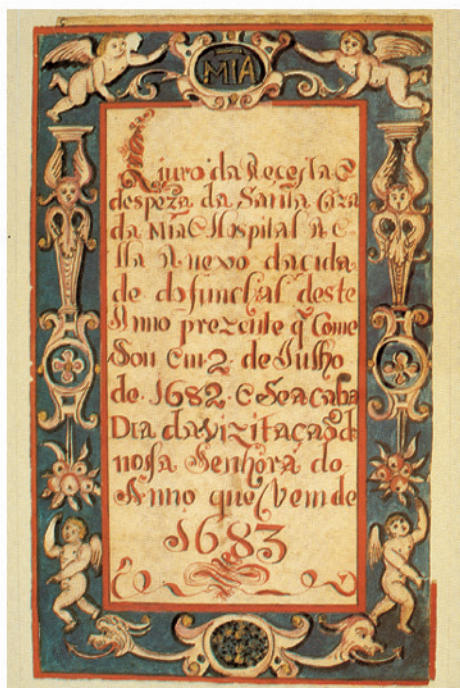 MIA
Liuro da Receita e
despeza da Santa Caza
da Mia e Hospital a e
lla anexo dacida
de dofunchal deste
Anno prezente q̃ Come
Sou em 2 de Julho
de 1682 e Seacaba
Dia davizitação de
nosa Senhora do
Anno que vem de
1683